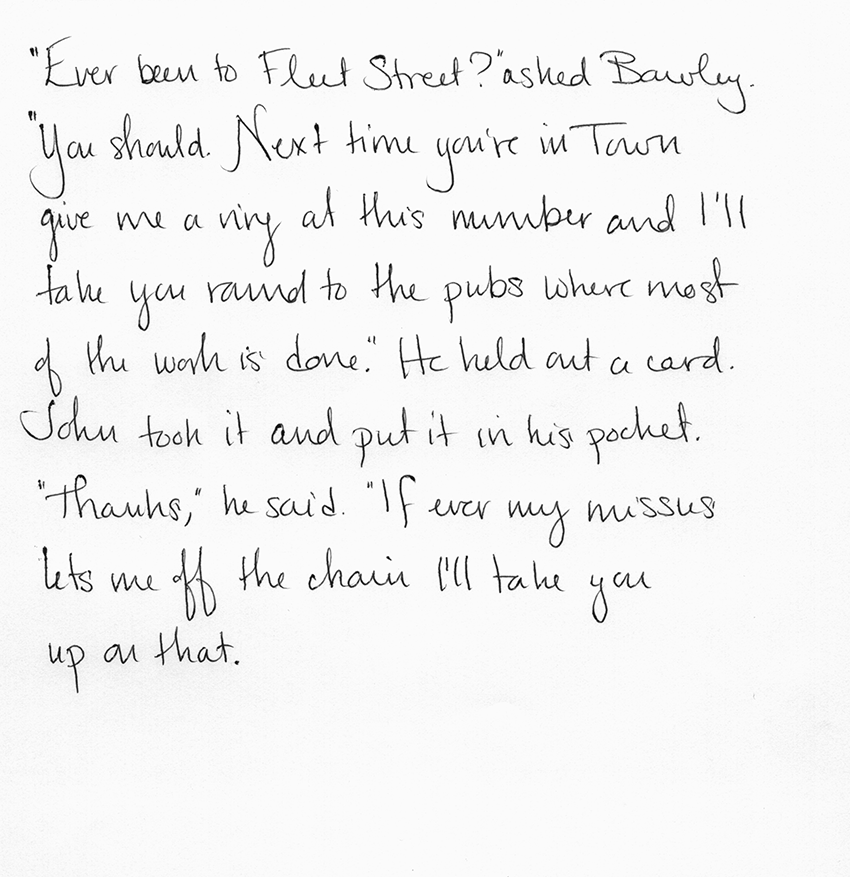 "Ever been to Fleet Street?" asked Bawley.
"You should. Next time you're in Town
give me a ring at this number and I'll
take you round to the pubs where most
of the work is done." He held out a card.
John took it and put it in his pocket.
"Thanks," he said. "If ever my missus
lets me off the chain I'll take you
up on that.